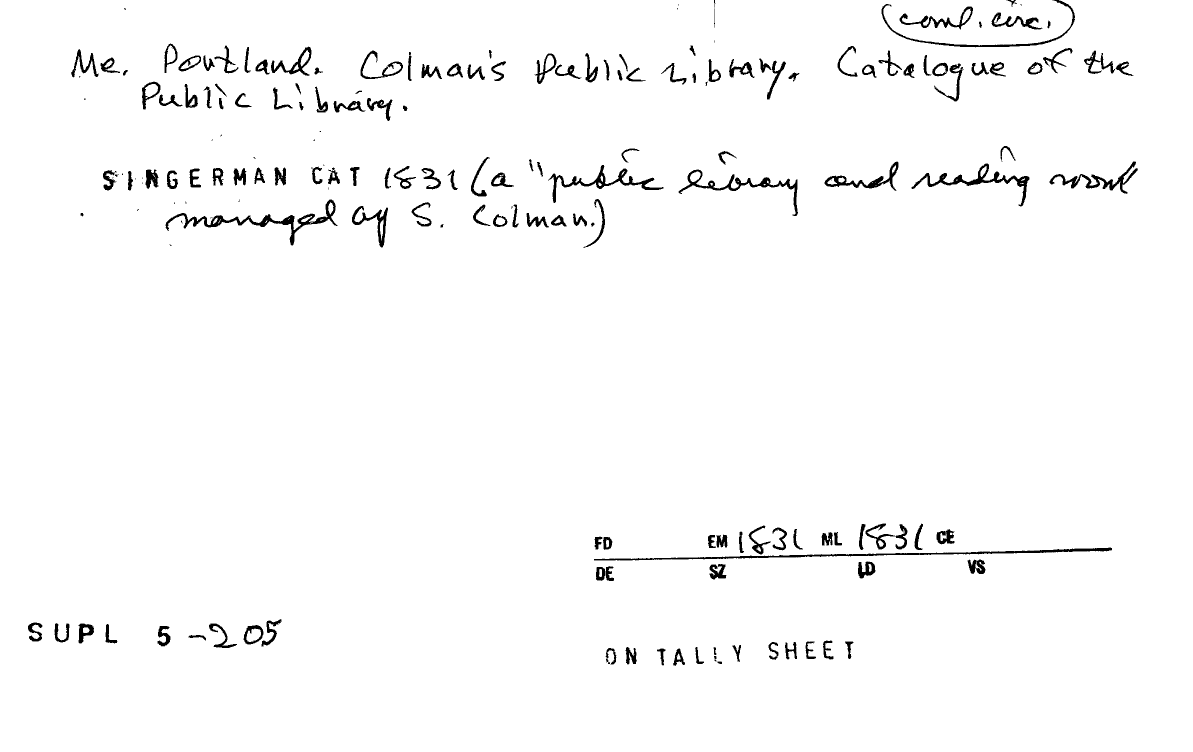 (coml. circ.)
Me. Portland. Colman's Public Library. Catalogue of the
Public Library.
SINGERMAN CAT 1831 (a "public library and reading room
managed by S. Colman.)
FD EM 1831 ML 1831 CE
DE SZ LD VS
SUPL 5-205
ON TALLY SHEET